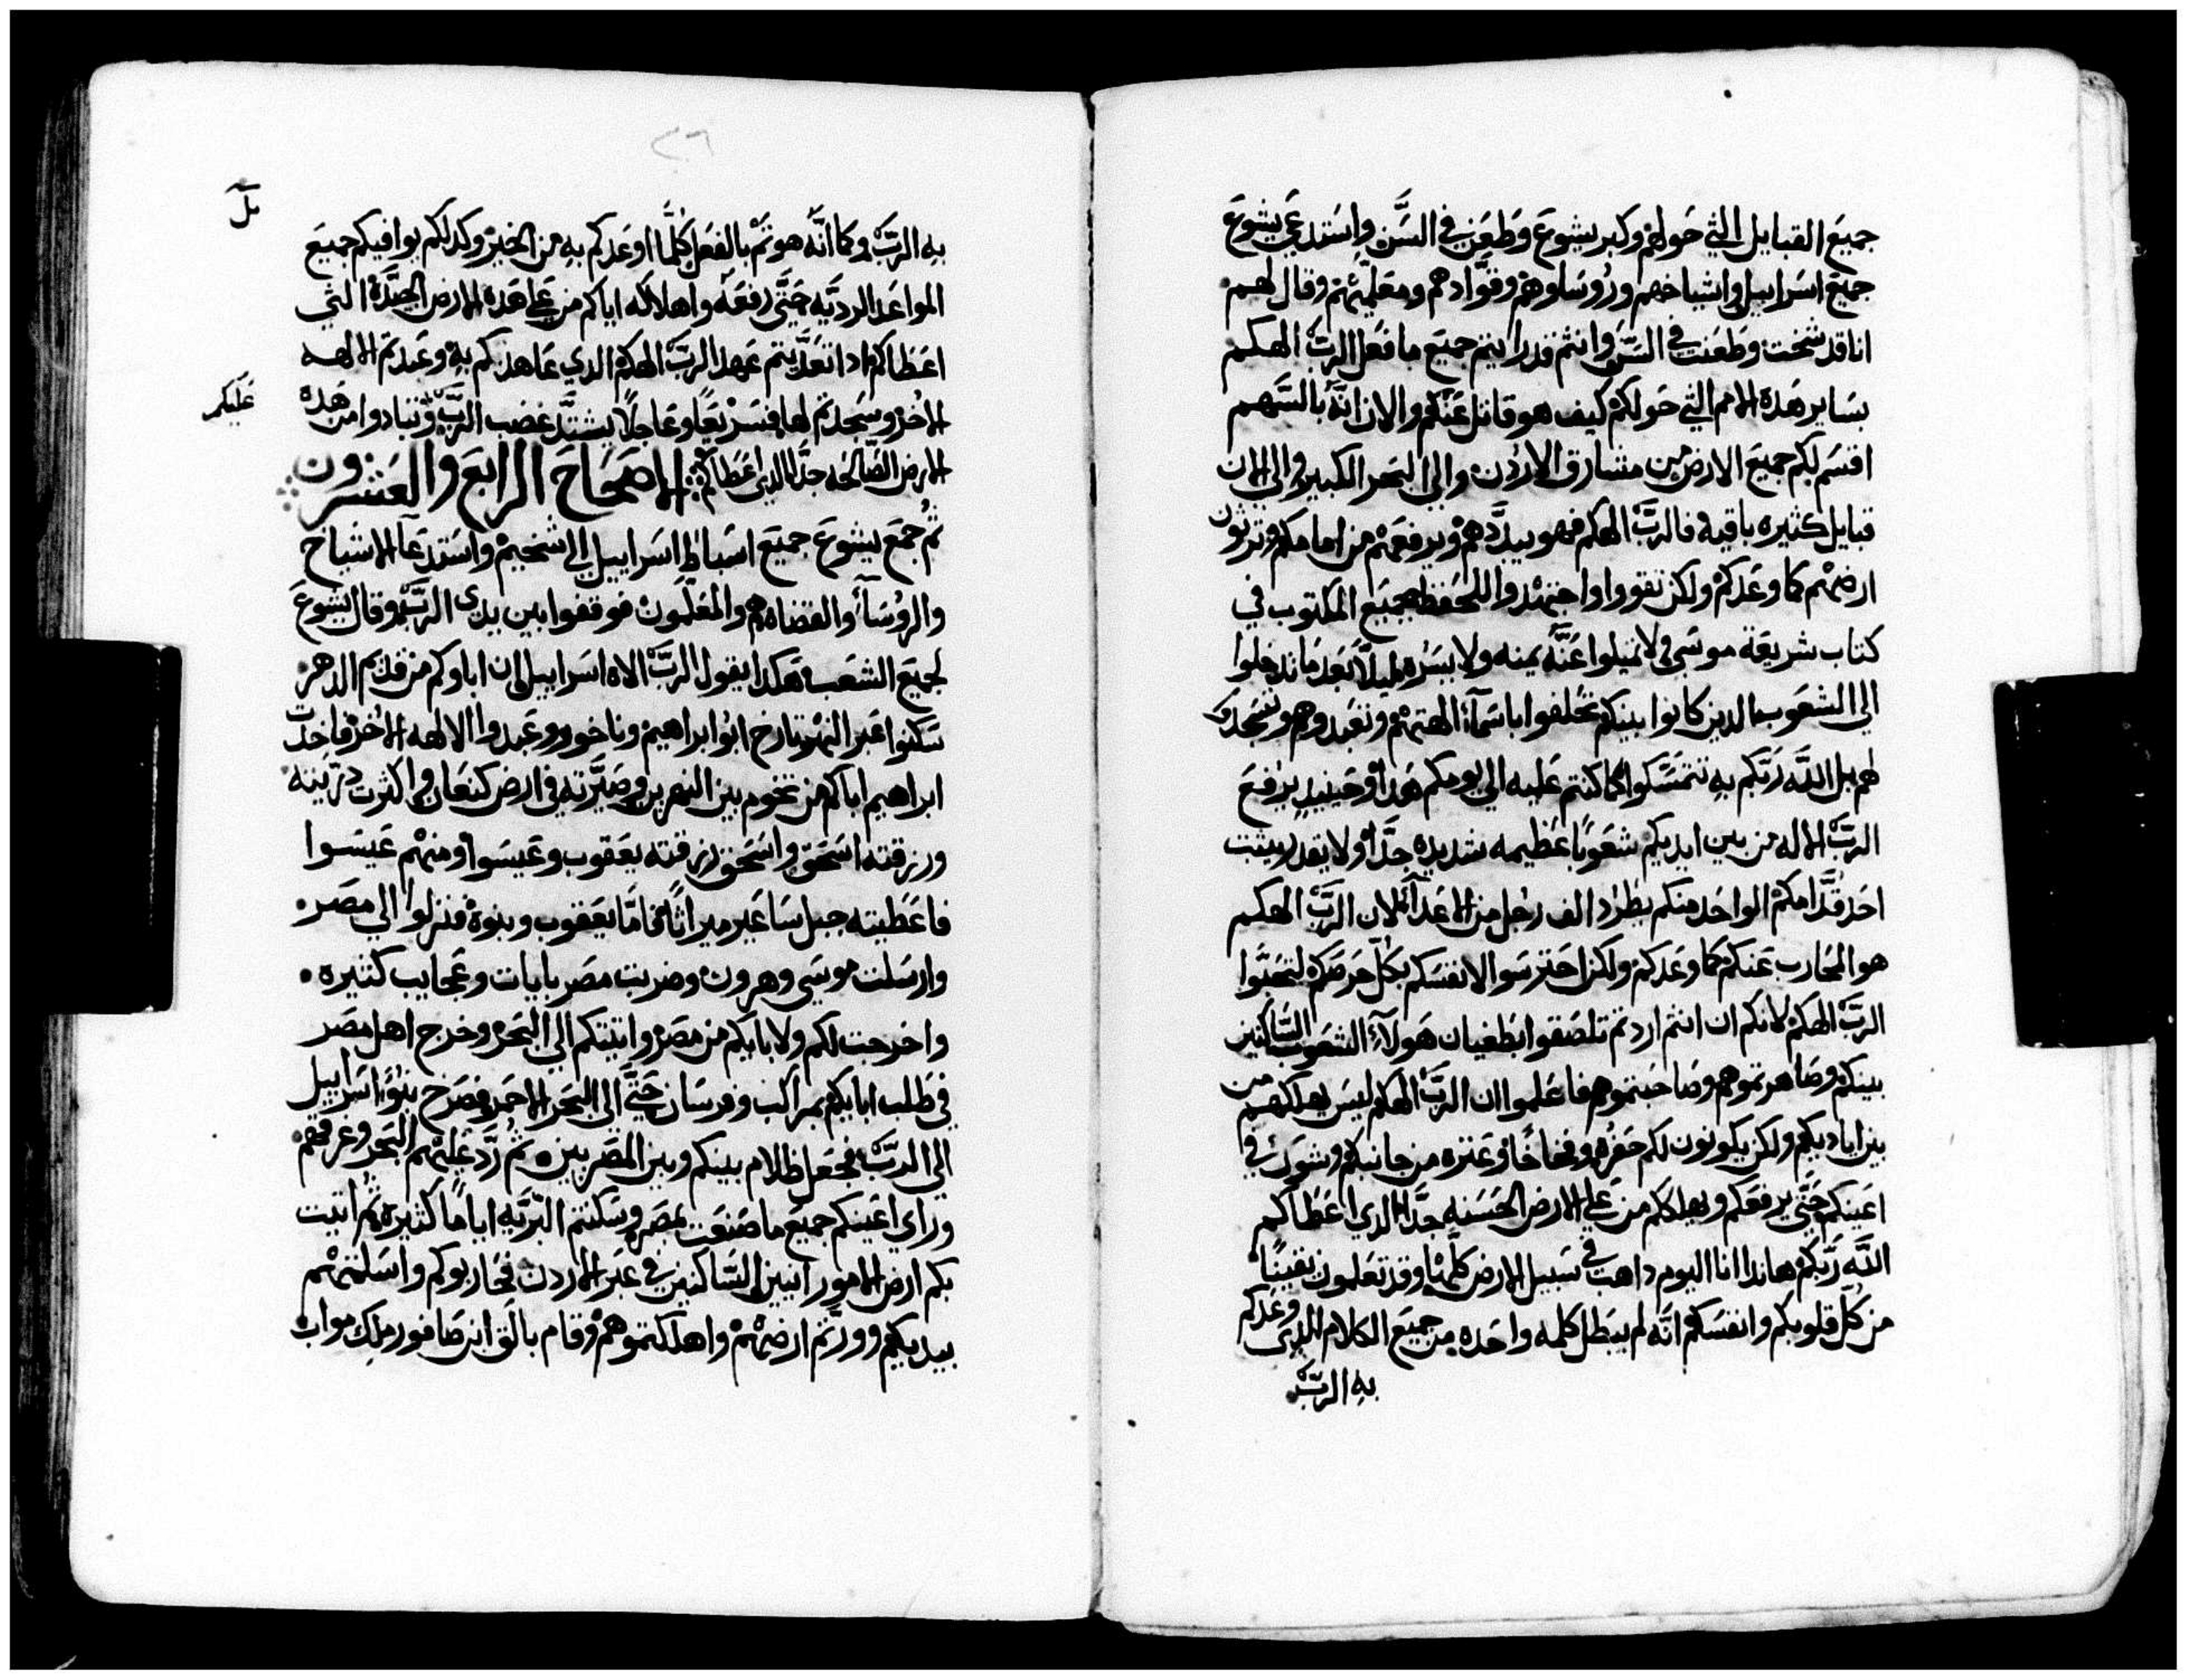 جميع القبايل التي حولهم وكبر يشوع وطعن في السن واستدعي يشوع
جميع اسراييل واشياخهم وروساوهم وقوادهم ومعلميهم وقال لهم
انا قد شخت وطعنت في السن وانتم قد رايتم جميع ما فعل الرب الهكم
بساير هذه الامم التي حولكم كيف هو قاتل عنكم والان انه بالسهم
اقسم لكم جميع الارض من مشارق الاردن والي البحر الكبير والي الان
قبايل كثيره باقية فالرب الهكم فهو يبددهم ويرفعهم من امامكم وترثون
ارضهم كما وعدكم ولكن تقووا واجتهدوا لتحفظوا جميع المكتوب في
كتاب شريعة موسي لا تميلوا عنه يمنه ولا يسره ليلا بعد ما تدخلوا
الي الشعوب الدين كانوا بينكم تحلفوا باسماء الهتهم وتعبدوهم وتسجدوا
لهم بل الله ربكم به تتمسكوا كما كنتم عليه الي يومكم هدا وحينيد يرفع
الرب الاله من بين ايديكم شعوبا عظيمه شديده جدا ولا يقدر يثبت
احد قدامكم الواحد منكم يطرد الف رجل من الاعدا لان الرب الهكم
هو المحارب عنكم كما وعدكم ولكن احترسوا لانفسكم بكل حرصكم لتحبوا
الرب الهكم لانكم ان انتم اردتم تلصقوا بطغيان هولاء الشعوب الساكنين
بينكم وصاهرتموهم وصاحبتموهم فاعلموا ان الرب الهكم ليس يهلكهم من
بين اياديكم ولكن يكونون لكم حفره وفخاخا وعتره من جانبكم وشوك في
اعينكم حتي يرفعكم ويهلككم من علي الارض الحسنه جدا الدي اعطاكم
الله ربكم هاندا انا اليوم داهب في سبيل الارض كلها وقد تعلمون يقينا
من كل قلوبكم وانفسكم انه لم يبطل كلمه واحده من جميع الكلام الدي وعدكم
به الرب
٢٦
به الرب وكما انه هو تم بالفعل كلما اوعدكم به من الخير وكدلكم يوافيكم جميع
المواعد الرديه حتي رفعه واهلاكه اياكم من علي هده الارض الجيدة التي
اعطاكم ادا تعديتم عهد الرب الهكم الدي عاهدكم به وعبدتم الالهه
الاخر وسجدتم لها فسريعا وعاجلا يشتد غضب الرب وتبادوا من هده
عليكم
الارض الصالحه جدا الدي اعطاكم الاصحاح الرابع والعشرون
ثم جمع يشوع جميع اسباط اسراييل الي شخيم واستدعا الاشياخ
والروسا والقضاه والمعلمون فوقفوا بين يدي الرب وقال يشوع
لجميع الشعب هكدا يقول الرب الاه اسراييل ان اباوكم من قديم الدهر
سكنوا عبر النهر تارخ ابو ابراهيم وناخور وعبدوا الالهه الاخر فاخدت
ابراهيم اباكم من تخوم بين النهرين وصيرته في ارض كنعان واكثرت دريته
ورزقته اسحق واسحق رزقته يعقوب وعيسوا ومنهم عيسوا
فاعطيته جبل ساعير ميراثا فاما يعقوب وبنوه فنزلوا الي مصر
وارسلت موسي وهرون وضربت مصر بايات وعجايب كثيره
واخرجت لكم ولابايكم من مصر واتيتكم الي البحر وخرج اهل مصر
في طلب ابايكم بمراكب وفرسان حتي الي البحر الاحمر فصرخ بنوا اسراييل
الي الرب فجعل ظلام بينكم وبين المصريين ثم رد عليهم البحر وغرقهم
وراي اعينكم جميع ما صنعت بمصر وسكنتم البريه اياما كثيره ثم اتيت
بكم ارض الامورانيين الساكنين في عبر الاردن فحاربوكم واسلمتهم
بيديكم وورثتم ارضهم واهلكتموهم وقام بالق ابن صافور ملك مواب